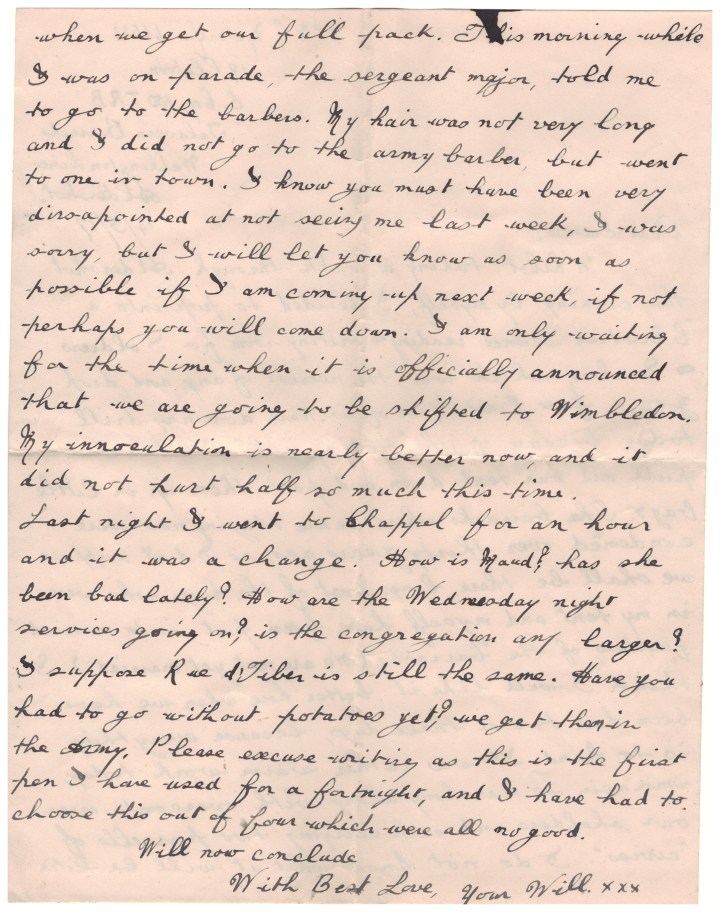 when we get our full pack. This morning while
I was on parade, the sergeant major, told me
to go to the barbers. My hair was not very long
and I did not go to the army barber, but went
to one in town. I know you must have been very
dissapointed at not seeing me last week, I was
sorry, but I will let you know as soon as
possible if I am coming up next week, if not
perhaps you will come down. I am only waiting
for the time when it is officially announced
that we are going to be shifted to Wimbledon.
My innoculation is nearly better now, and it
did not hurt half so much this time.
Last night I went to Chappel for an hour
and it was a change. How is Maud? has she
been bad lately? How are the Wednesday night
services going on? is the congregation any larger?
I suppose is still the same. Have you
had to go without potatoes yet? we get them in
the Army. Please excuse writing as this is the first
pen I have used for a fortnight, and I have had to
choose this out of four which were all no good.
Will now conclude
With Best Love, Your Will. xxx